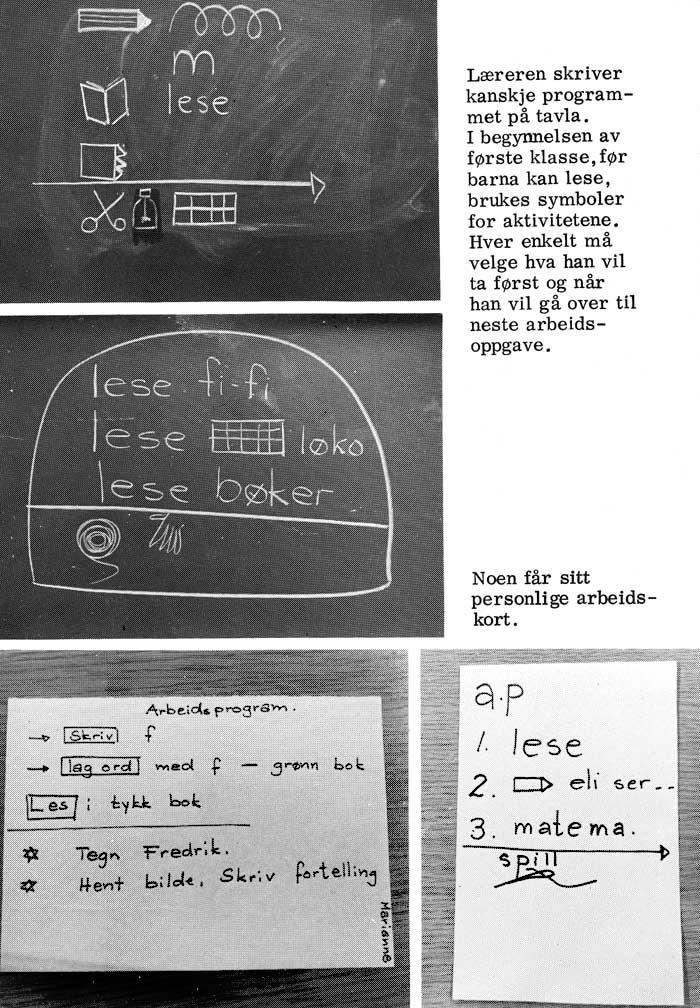 m
lese
Læreren skriver
kanskje program-
met på tavla.
I begynnelsen av
første klasse, før
barna kan lese,
brukes symboler
for aktivitetene.
Hver enkelt må
velge hva han vil
ta først og når
han vil gå over til
neste arbeids-
oppgave.
lese fi-fi
lese løko
lese bøker
Noen får sitt
personlige arbeids-
kort.
Arbeidsprogram.
→ Skriv f
→ lag ord med f — grønn bok
Les i tykk bok
Tegn Fredrik.
Hent bilde. Skriv fortelling
Marianne
a.p
1. lese
2. eli ser...
3. matema.
spill